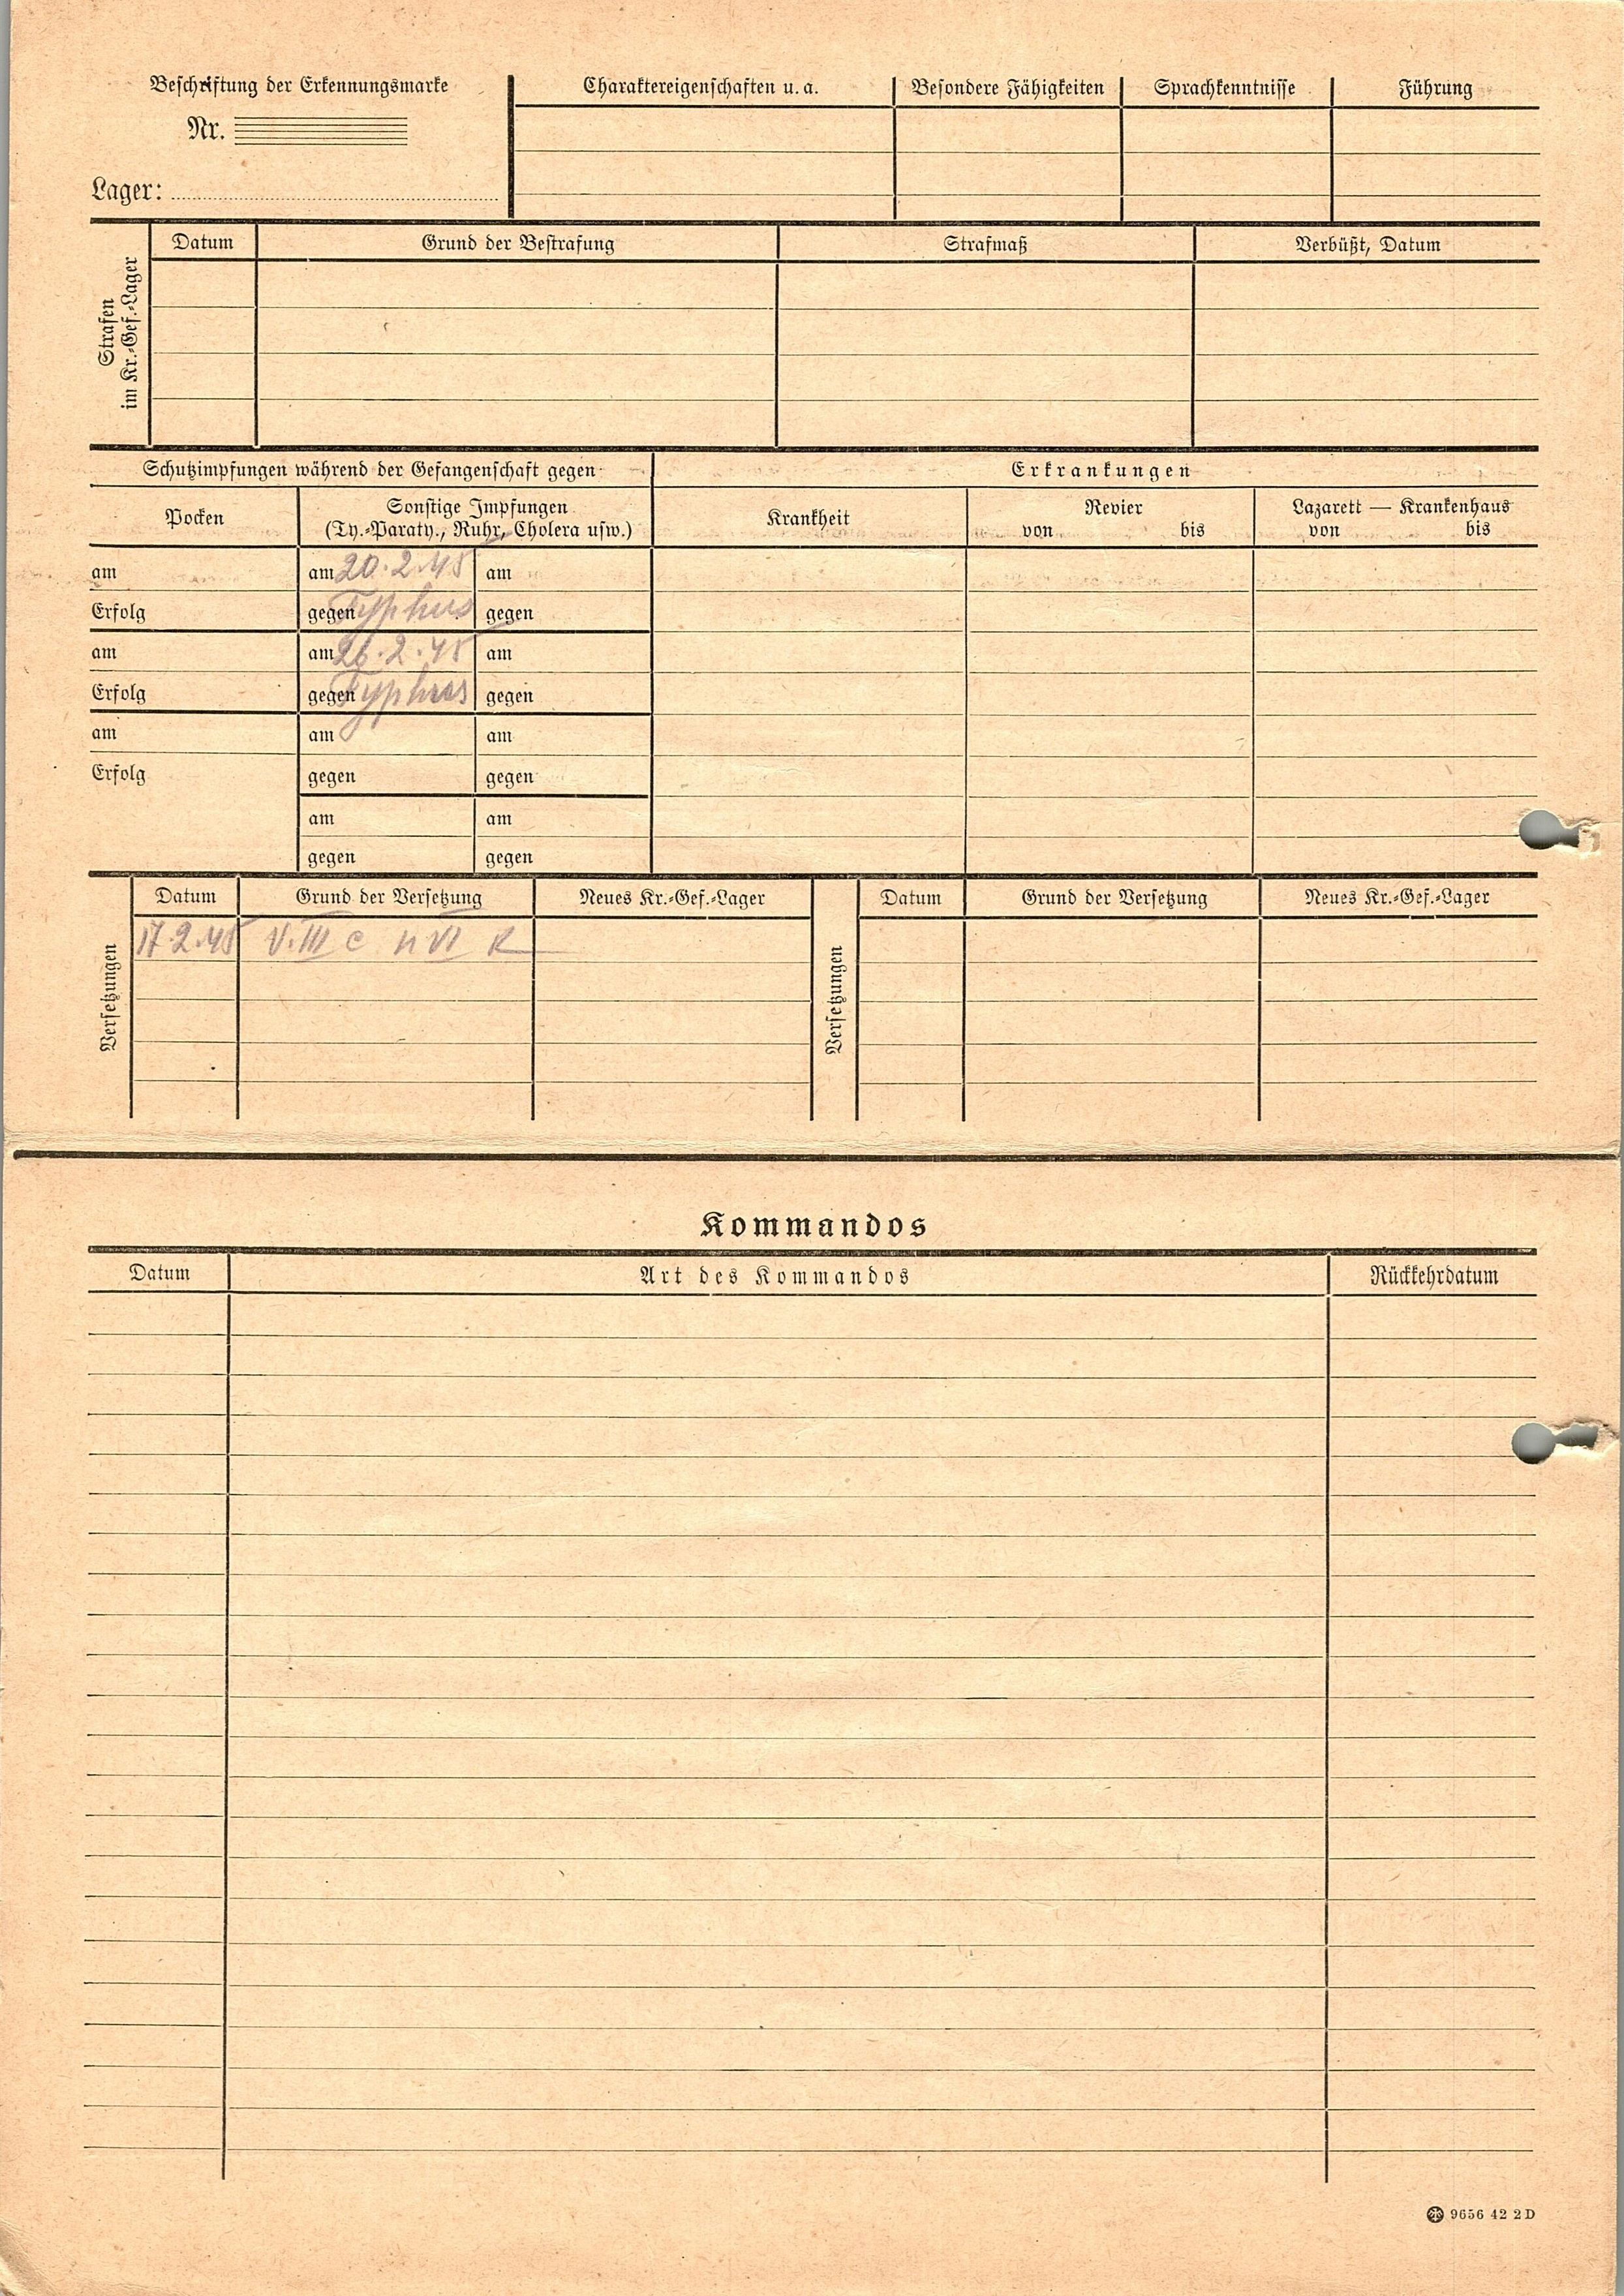 Beschriftung der Erkennungsmarke
Nr.
Lager:
Charaktereigenschaften u. a.
Besondere Fähigkeiten
Sprachkenntnisse
Führung
Strafen
im Kr.-Gef.-Lager
Datum
Grund der Bestrafung
Strafmaß
Verbüßt, Datum
Schutzimpfungen während der Gefangenschaft gegen
Erkrankungen
Pocken
Sonstige Impfungen
(Ty.-Paraty., Ruhr, Cholera usw.)
Krankheit
Revier
von bis
Lazarett — Krankenhaus
von bis
am am 20.2.45 am
Erfolg gegen Typhus gegen
am am 26.2.45 am
Erfolg gegen Typhus gegen
am am am
Erfolg gegen gegen
am am
gegen gegen
Versetzungen
Datum Grund der Versetzung Neues Kr.-Gef.-Lager
17.2.45 V. III c n VI K
Versetzungen
Datum Grund der Versetzung Neues Kr.-Gef.-Lager
Kommandos
Datum Art des Kommandos Rückkehrdatum
9656 42 2 D